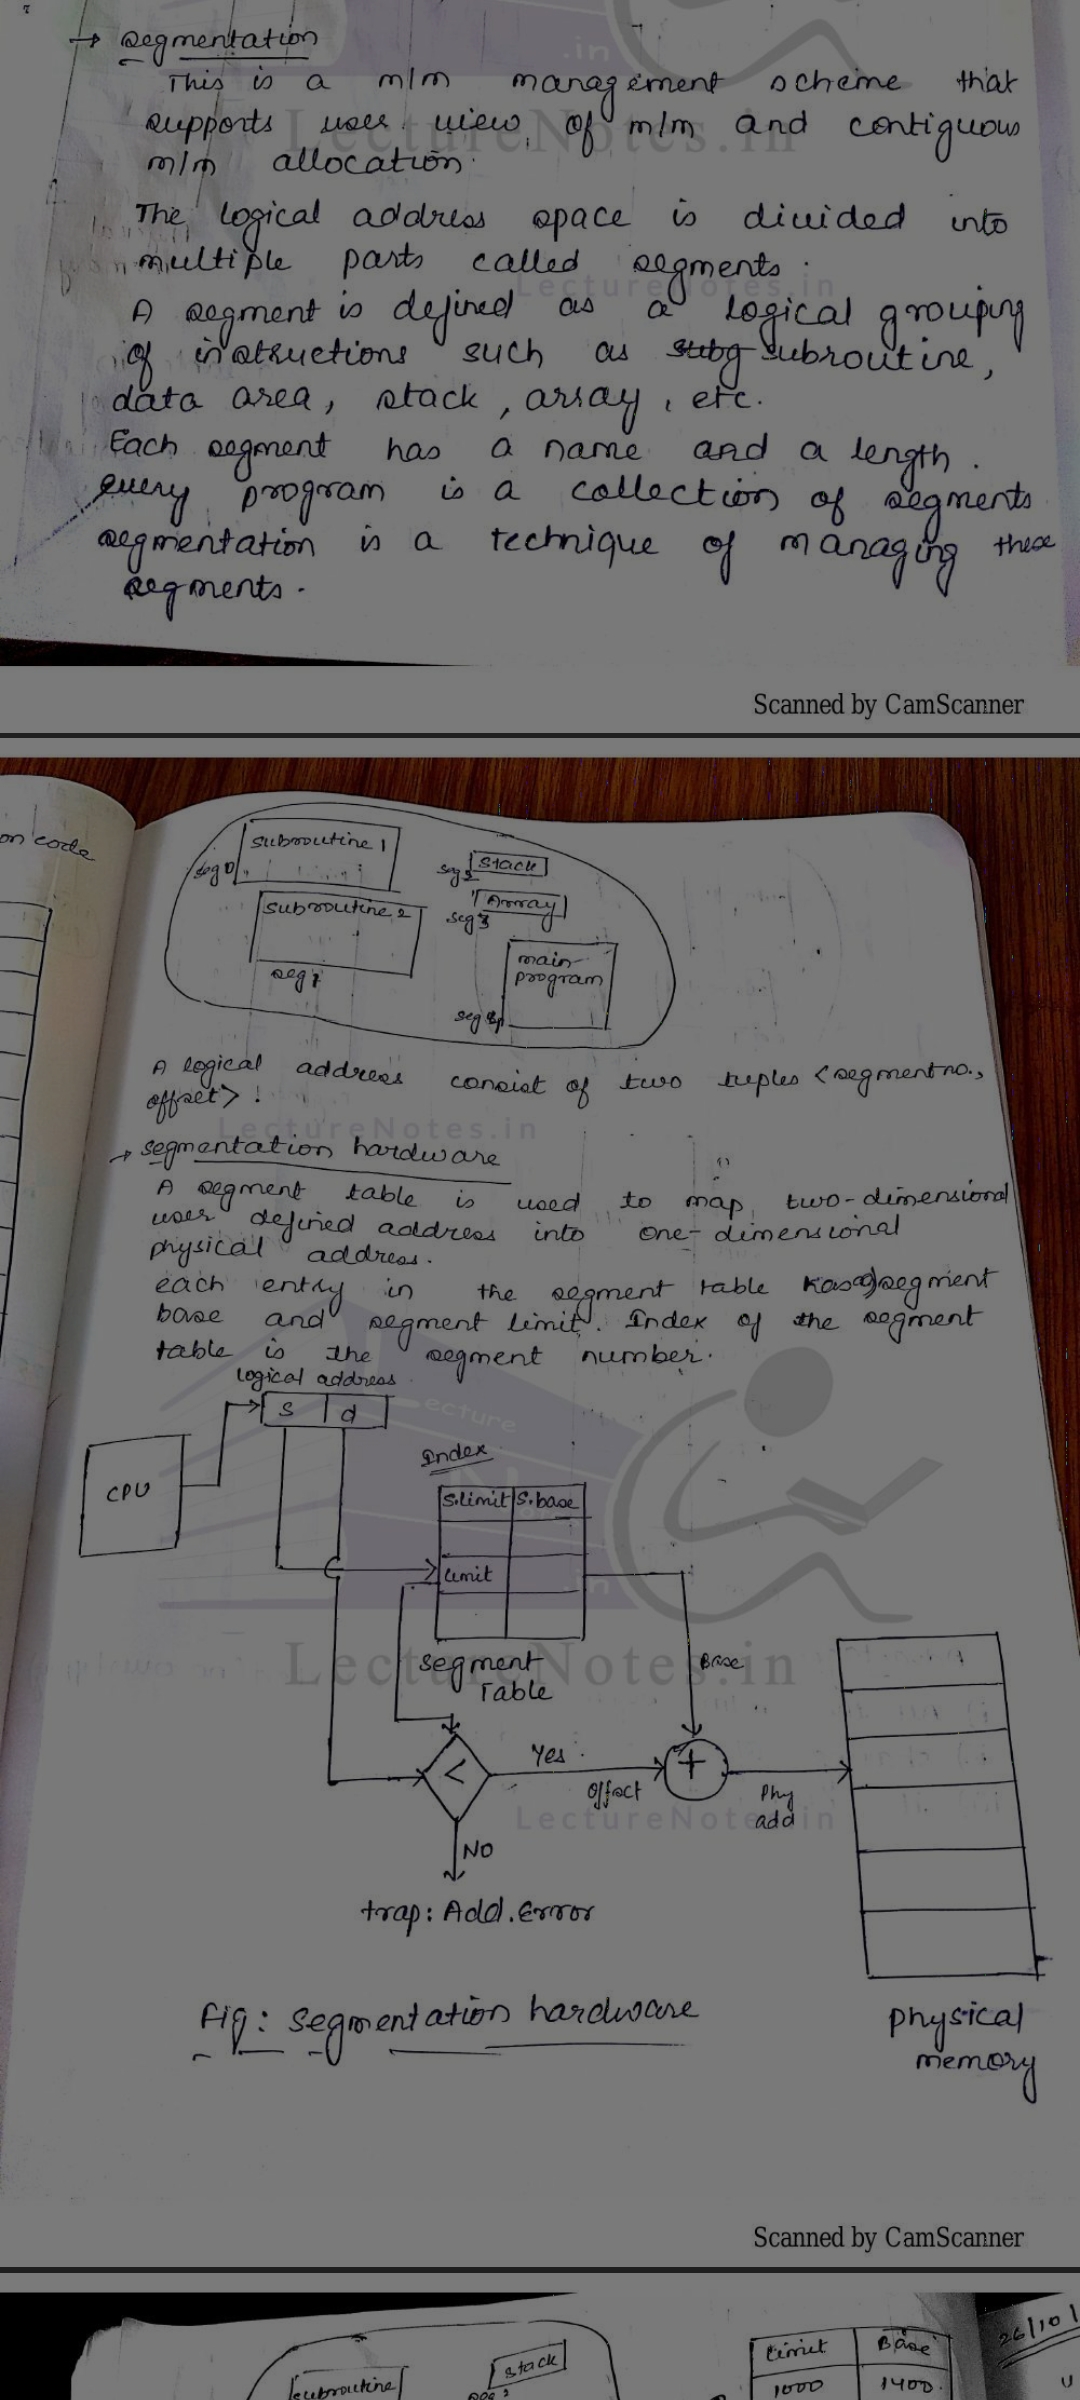 → segmentation
This is a m/m management scheme that
supports user view of m/m and contiguous
m/m allocation.
The logical address space is divided into
multiple parts called segments.
A segment is defined as a logical grouping
of instructions such as subg subroutine,
data area, stack, array, etc.
Each segment has a name and a length.
every program is a collection of segments
segmentation is a technique of managing these
segments.
LectureNotes.in
LectureNotes.in
Scanned by CamScanner
on code
subroutine 1
seg 0
subroutine 2
seg 1
Stack
Array
seg 3
main
program
A logical address consist of two tuples <segment no.,
offset> !
LectureNotes.in
→ segmentation hardware
A segment table is used to map two-dimensional
user defined address into one-dimensional
physical address.
each entry in the segment table has segment
base and segment limit. Index of the segment
table is the segment number.
logical address
s d
CPU
Index
S.limit S.base
limit
Segment
Table
Base
<
Yes
offset
+
Phy
add
NO
trap: Add. Error
LectureNotes.in
LectureNotes.in
Fig: segmentation hardware
physical
memory
Scanned by CamScanner
subroutine
Stack
Limit Base
1000 1400
26/10/